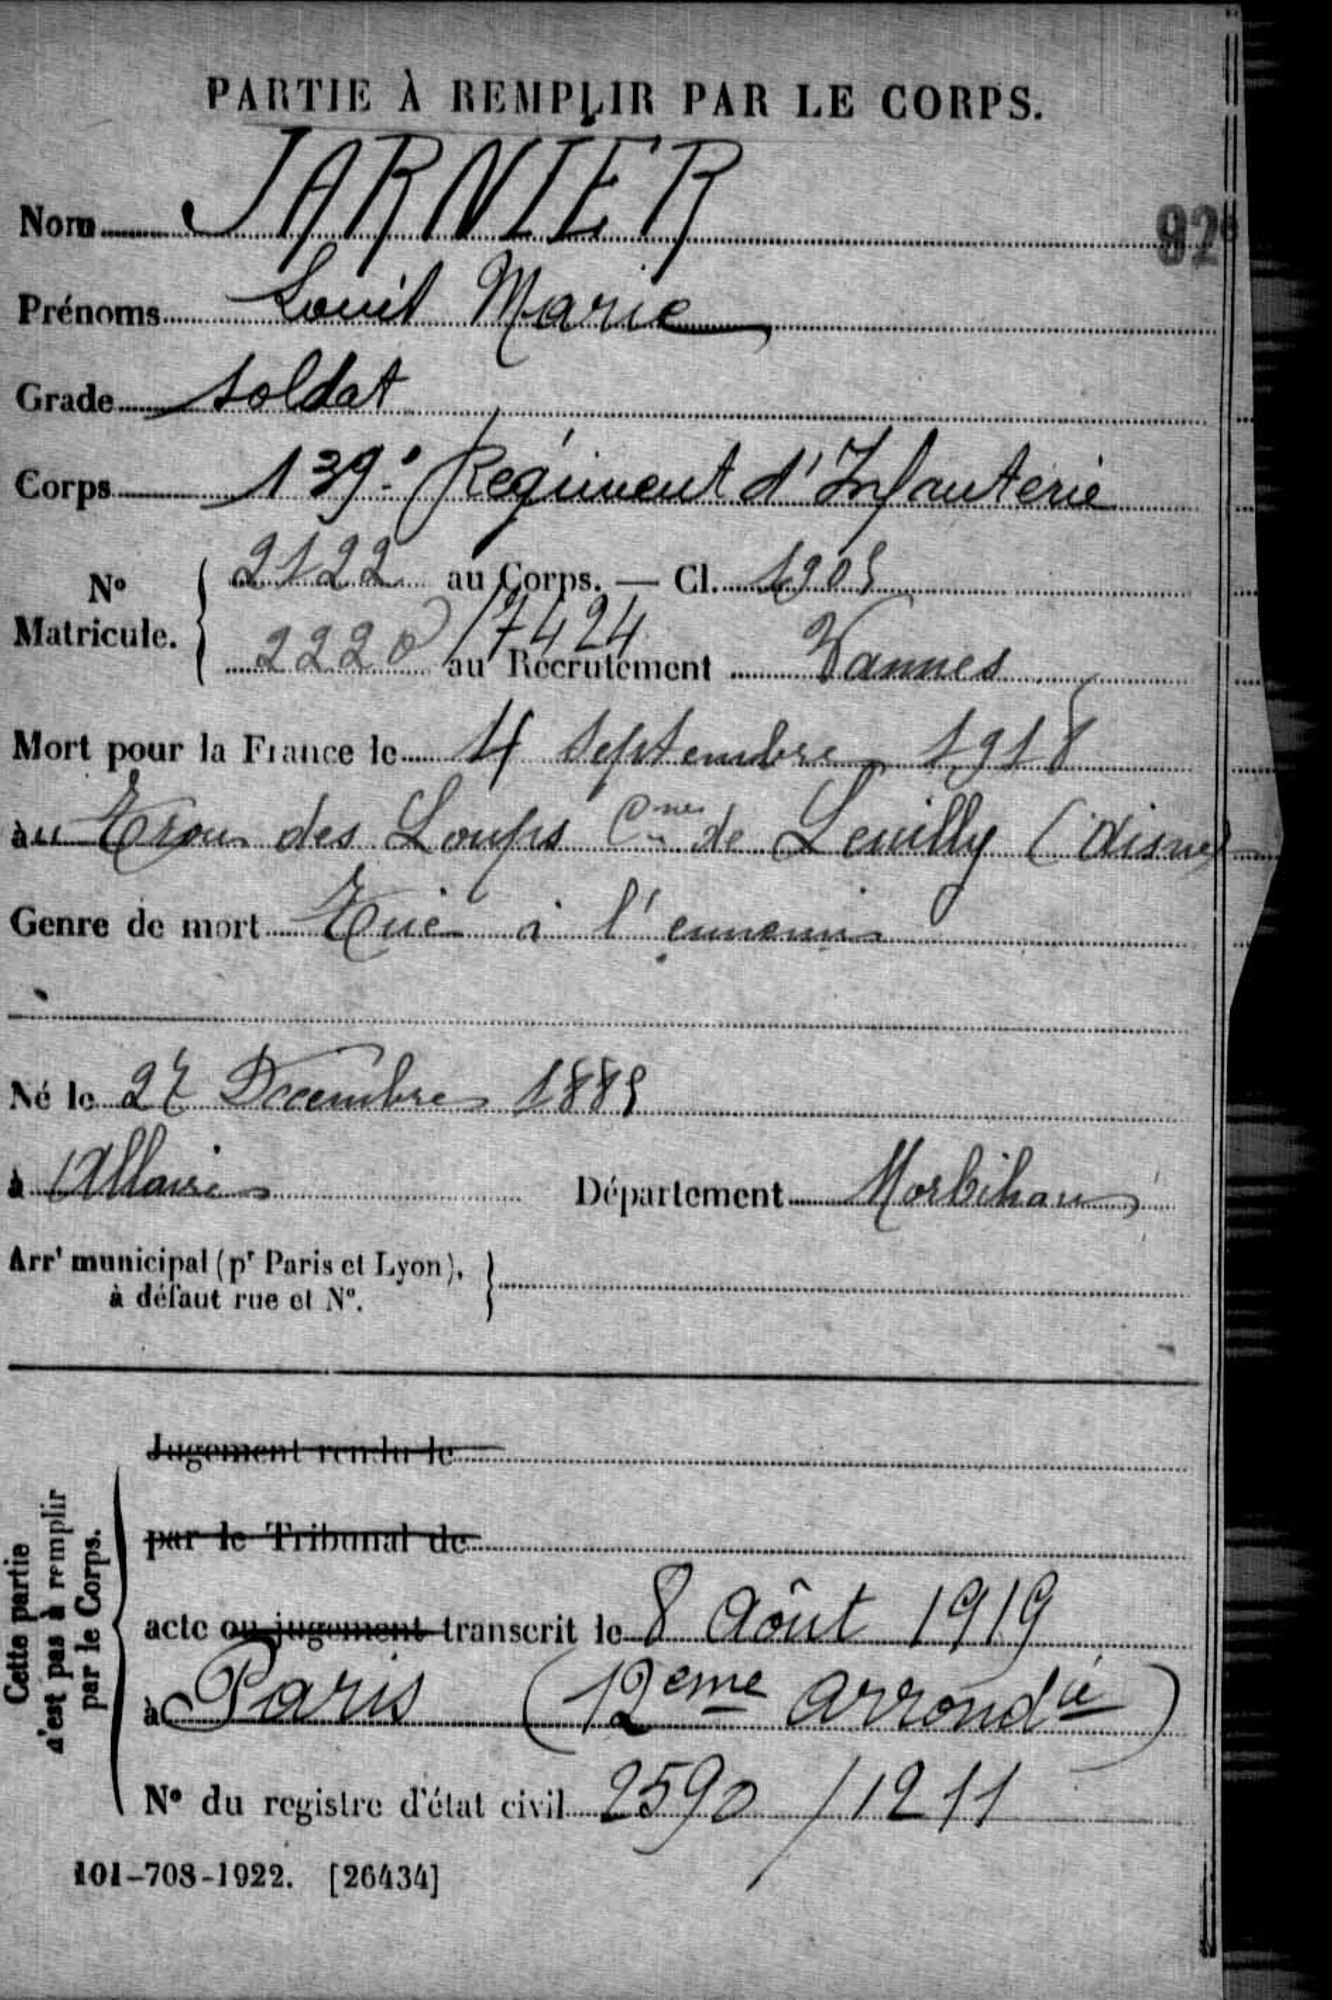 PARTIE À REMPLIR PAR LE CORPS.
Nom JARNIER
92
Prénoms Louis Marie
Grade soldat
Corps 139e Régiment d'Infanterie
No Matricule. 2122 au Corps. — Cl. 1905
17424
2220 au Recrutement Vannes
Mort pour la France le 4 septembre 1918
au Trou des Loups Cne de Leuilly (Aisne)
Genre de mort Tué à l'ennemi
Né le 27 Décembre 1885
à Allaire Département Morbihan
Arrt municipal (pr Paris et Lyon),
à défaut rue et No.
Cette partie
n'est pas à remplir
par le Corps.
Jugement rendu le
par le Tribunal de
acte ou jugement transcrit le 8 Août 1919
à Paris (12eme arrondie)
No du registre d'état civil 2590 / 1211
101-708-1922. [26434]